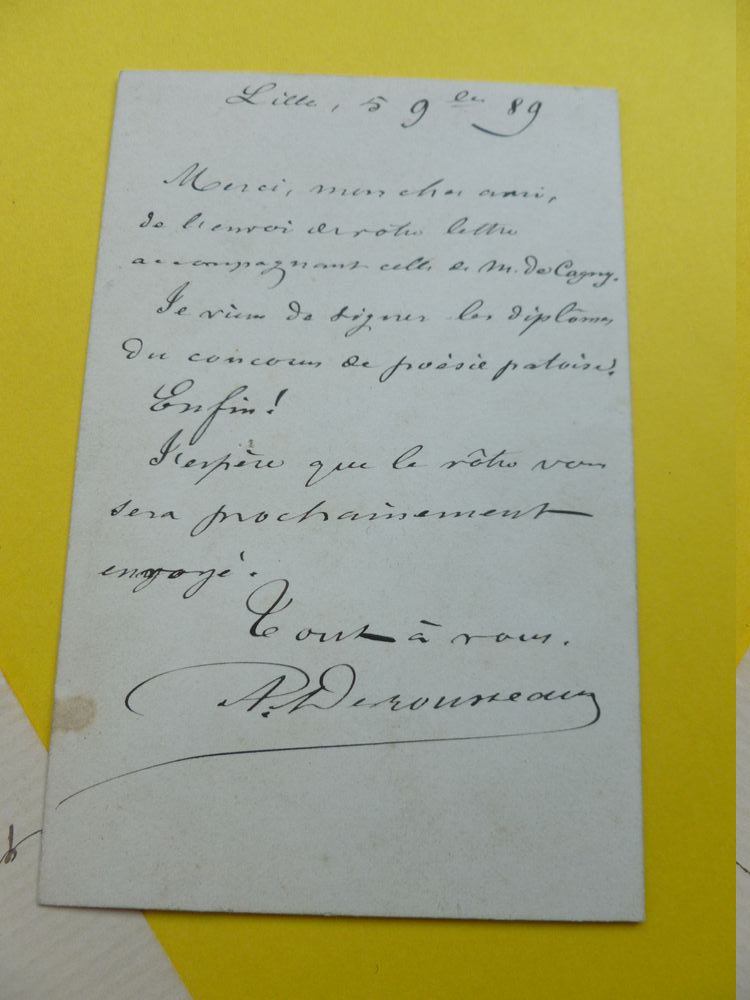 Lille, 5 9bre 89
Merci, mon cher ami,
de l'envoi de votre lettre
accompagnant celle de M. de Cagny.
Je viens de signer les diplômes
du concours de poésie patoise.
Enfin!
J'espère que le vôtre vous
sera prochainement
envoyé.
Tout à vous.
A. Desrousseaux